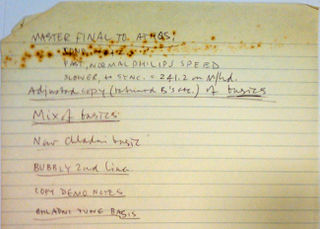 MASTER FINAL TO
FAST, NORMAL PHILIPS SPEED
SLOWER, to SYNC. = 241.2 on M/hd.
Adjusted copy (returned B's etc.) of basics
Mix of basics
New Chladni basic
BUBBLY 2nd line
COPY DEMO NOTES
CHLADNI TUNE BASIS